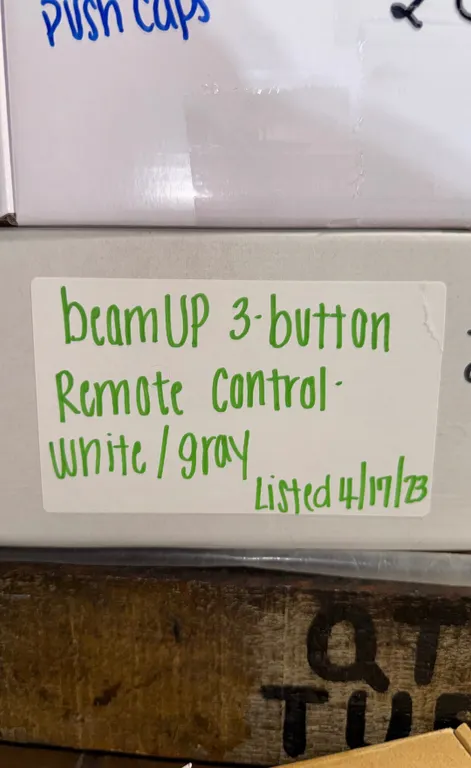 push caps
beamUP 3-button
Remote Control-
white/gray
Listed 4/17/23
QT
TU